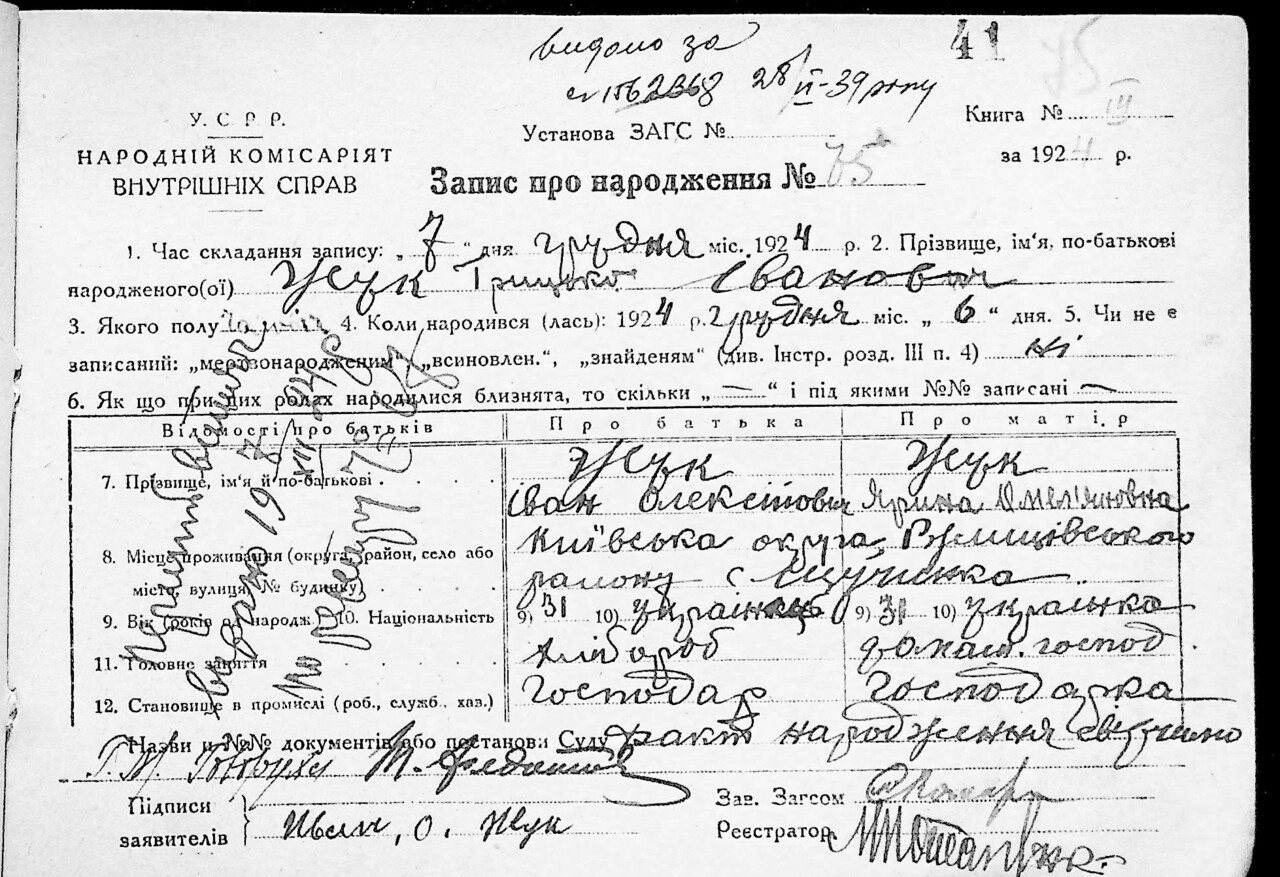 видано за
28/II-39 року
41
75
У. С. Р. Р.
НАРОДНІЙ КОМІСАРІЯТ
ВНУТРІШНІХ СПРАВ
Установа ЗАГС №
Книга № III
за 1924 р.
Запис про народження № 75
1. Час складання запису: „ 7 “ дня грудня міс. 1924 р. 2. Прізвище, ім‘я, по-батькові
народженого(ої) Жук Грицько Іванович
3. Якого полу 4. Коли народився (лась): 1924 р. грудня міс. „ 6 “ дня. 5. Чи не є
записаний: „мертвонародженим“, „всиновлен.“, „знайденям“ (див. Інстр. розд. III п. 4) ні
6. Як що при цих родах народилися близнята, то скільки „ — “ і під якими №№ записані —
Відомості про батьків Про батька Про матір
7. Прізвище, ім‘я й по-батькові Жук Жук
Іван Олексійович Ярина Омел'яновна
8. Місце проживання (округа, район, село або Київська округа,
місто, вулиця, № будинку) району с Щучинка
9. Вік (років од народж.) 10. Національність 9) 31 10) українець 9) 31 10) українка
11. Головне заняття хлібороб домаш. господ
12. Становище в промислі (роб., служб., хаз.) господар господарка
Назви и №№ документів або постанови Суду факт народження свідчило
Підписи
заявителів
Жук
Зав. Загсом
Реєстратор